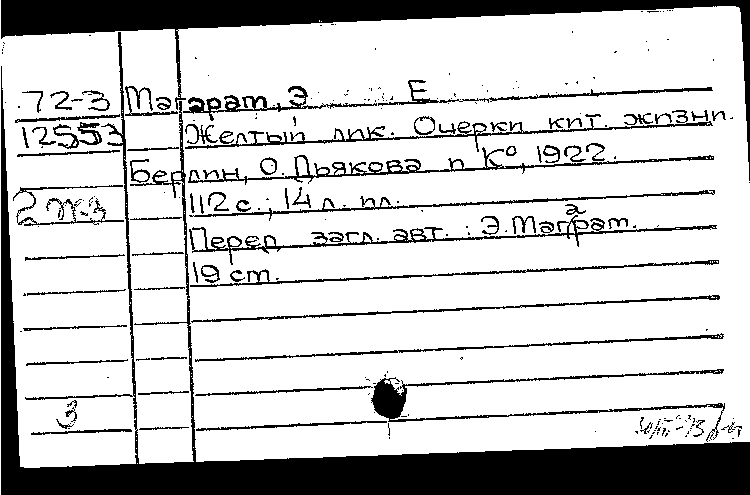 72-3 Магарат, Э Е
12553 Желтый лик. Очерки кит. жизни.
Берлин, О. Дьякова и К°, 1922.
2 ж-3 112 с.; 14 л. ил.
Перед загл. авт.: Э. Маграт.
а
19 cm.
3